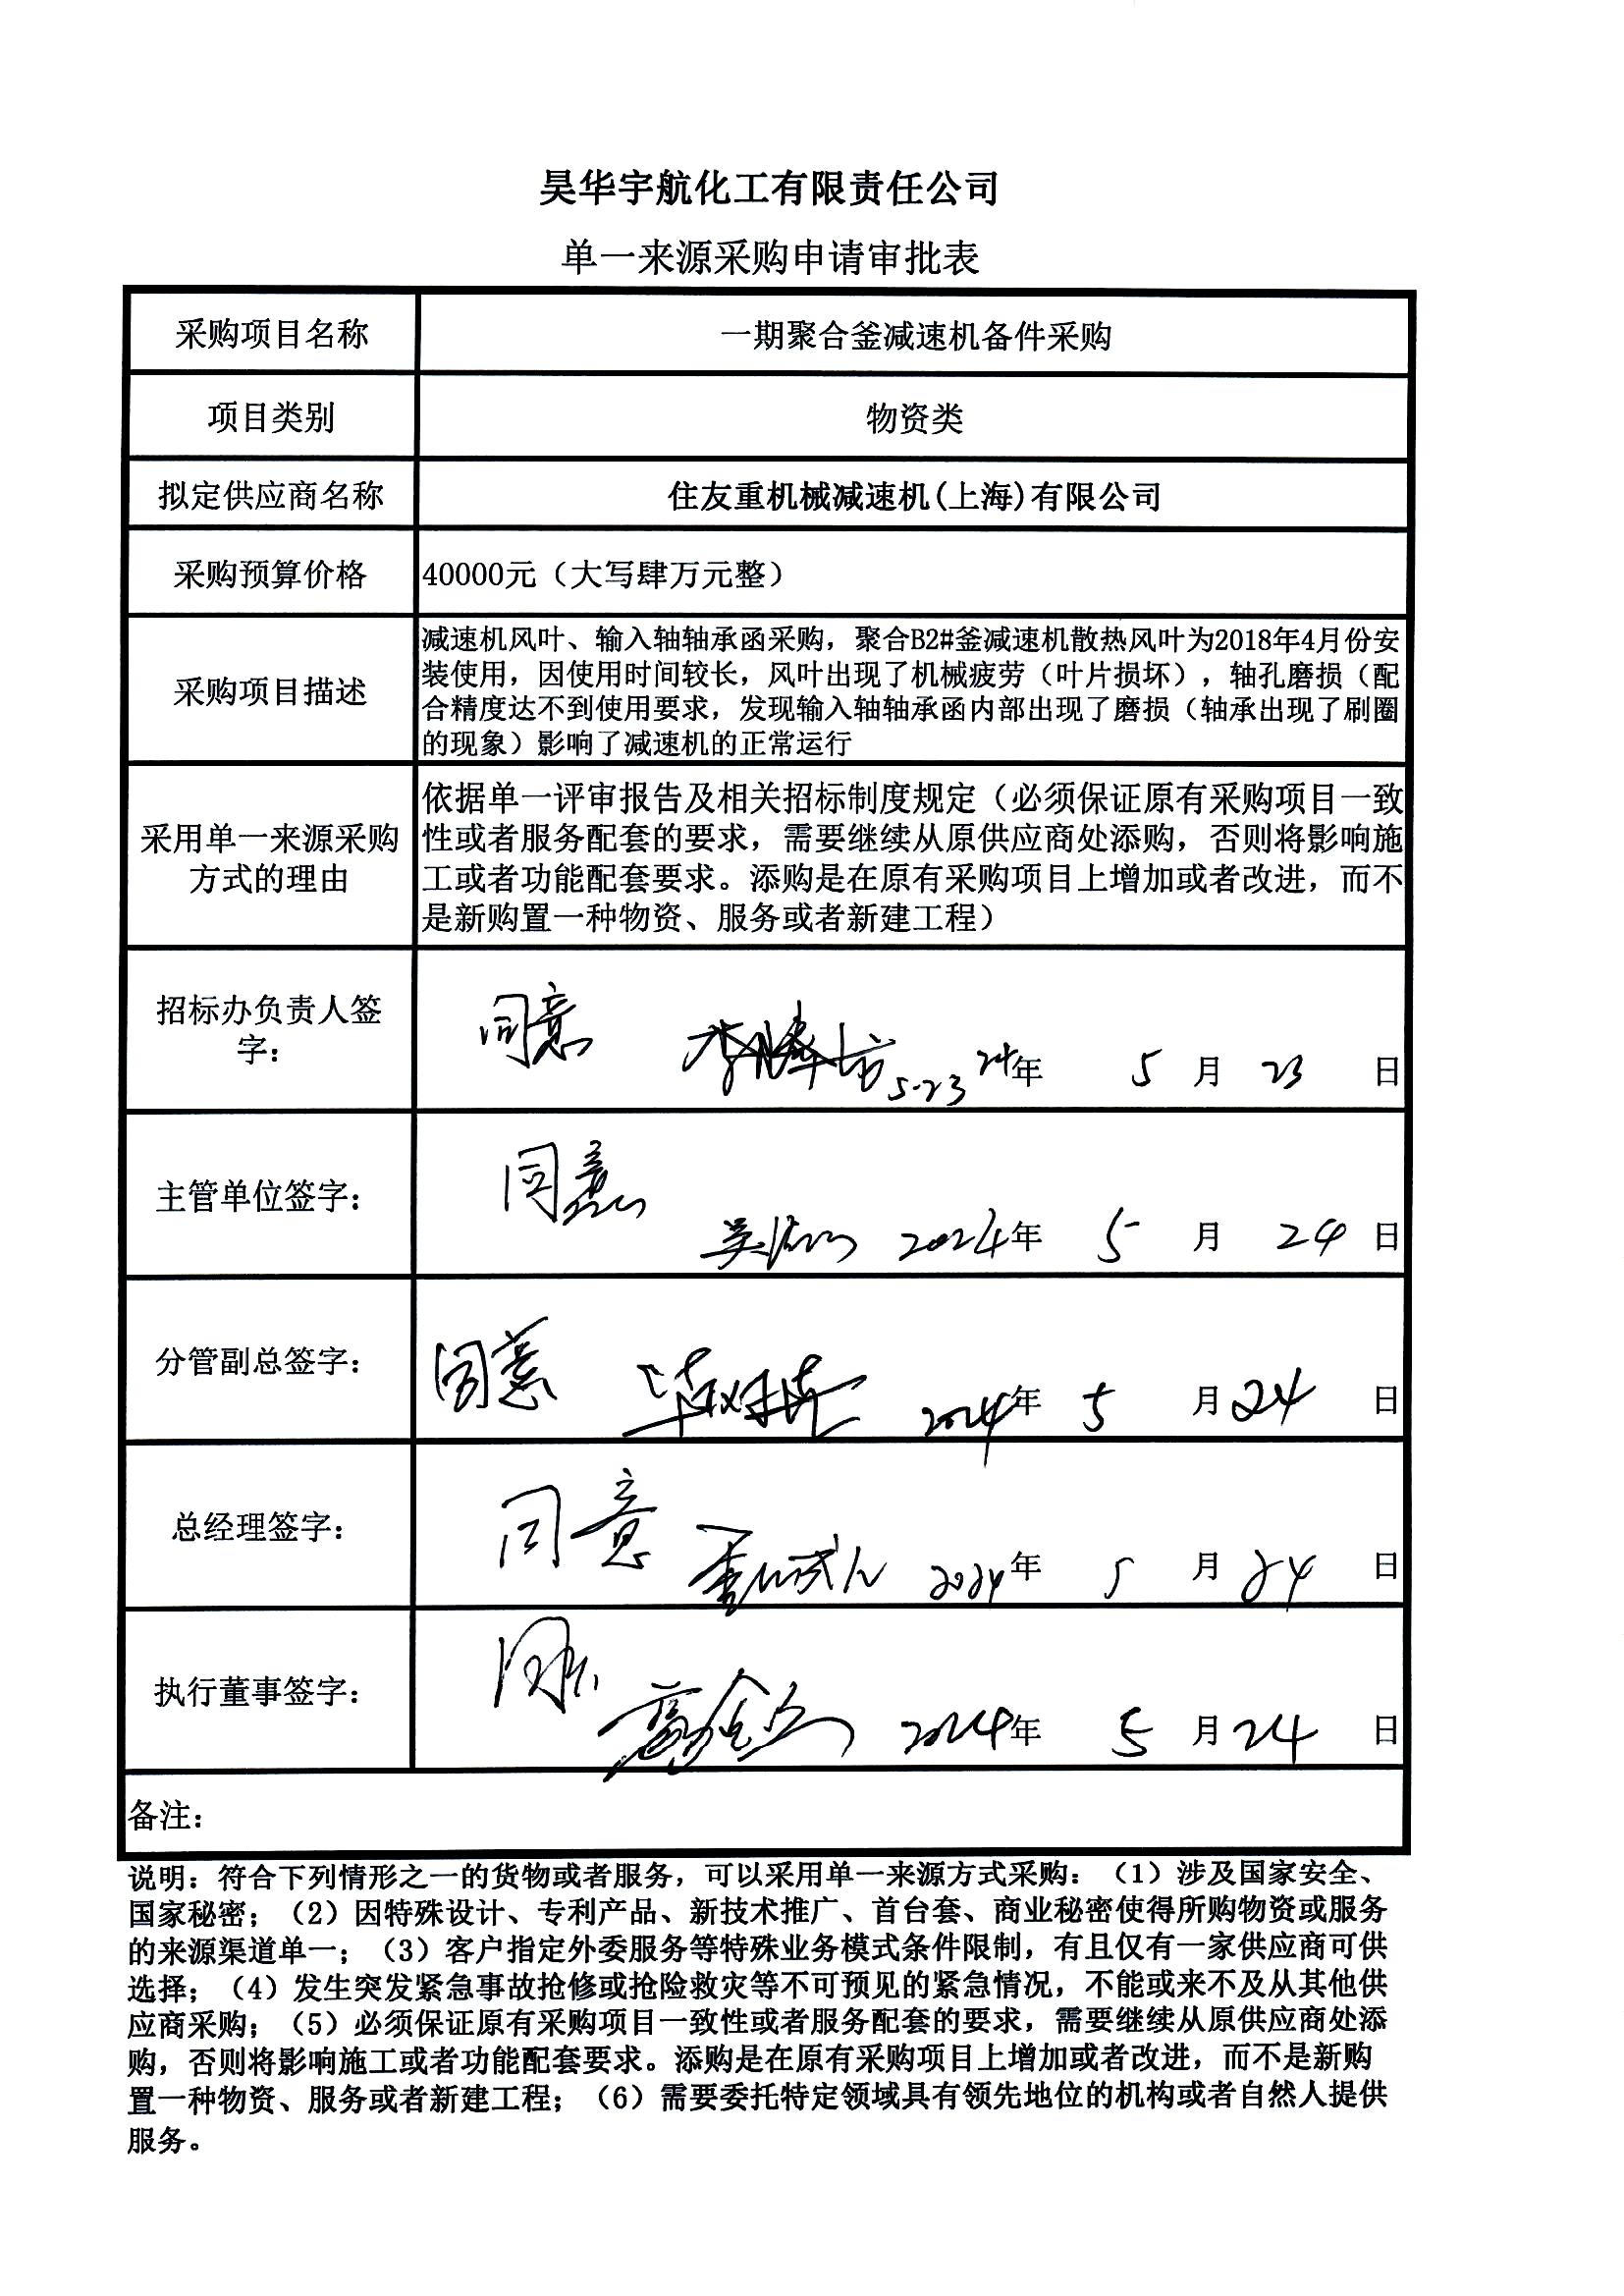 昊华宇航化工有限责任公司
单一来源采购申请审批表
采购项目名称
一期聚合釜减速机备件采购
项目类别
物资类
拟定供应商名称
住友重机械减速机(上海)有限公司
采购预算价格
40000元（大写肆万元整）
采购项目描述
减速机风叶、输入轴轴承函采购，聚合B2#釜减速机散热风叶为2018年4月份安
装使用，因使用时间较长，风叶出现了机械疲劳（叶片损坏），轴孔磨损（配
合精度达不到使用要求，发现输入轴轴承函内部出现了磨损（轴承出现了刷圈
的现象）影响了减速机的正常运行
采用单一来源采购
方式的理由
依据单一评审报告及相关招标制度规定（必须保证原有采购项目一致
性或者服务配套的要求，需要继续从原供应商处添购，否则将影响施
工或者功能配套要求。添购是在原有采购项目上增加或者改进，而不
是新购置一种物资、服务或者新建工程）
招标办负责人签
字：
同意
5-23 24年 5 月 23 日
主管单位签字：
同意
2024年 5 月 24 日
分管副总签字：
同意
2024年 5 月 24 日
总经理签字：
同意
2024年 5 月 24 日
执行董事签字：
同意
2024年 5 月 24 日
备注：
说明：符合下列情形之一的货物或者服务，可以采用单一来源方式采购：（1）涉及国家安全、
国家秘密；（2）因特殊设计、专利产品、新技术推广、首台套、商业秘密使得所购物资或服务
的来源渠道单一；（3）客户指定外委服务等特殊业务模式条件限制，有且仅有一家供应商可供
选择；（4）发生突发紧急事故抢修或抢险救灾等不可预见的紧急情况，不能或来不及从其他供
应商采购；（5）必须保证原有采购项目一致性或者服务配套的要求，需要继续从原供应商处添
购，否则将影响施工或者功能配套要求。添购是在原有采购项目上增加或者改进，而不是新购
置一种物资、服务或者新建工程；（6）需要委托特定领域具有领先地位的机构或者自然人提供
服务。